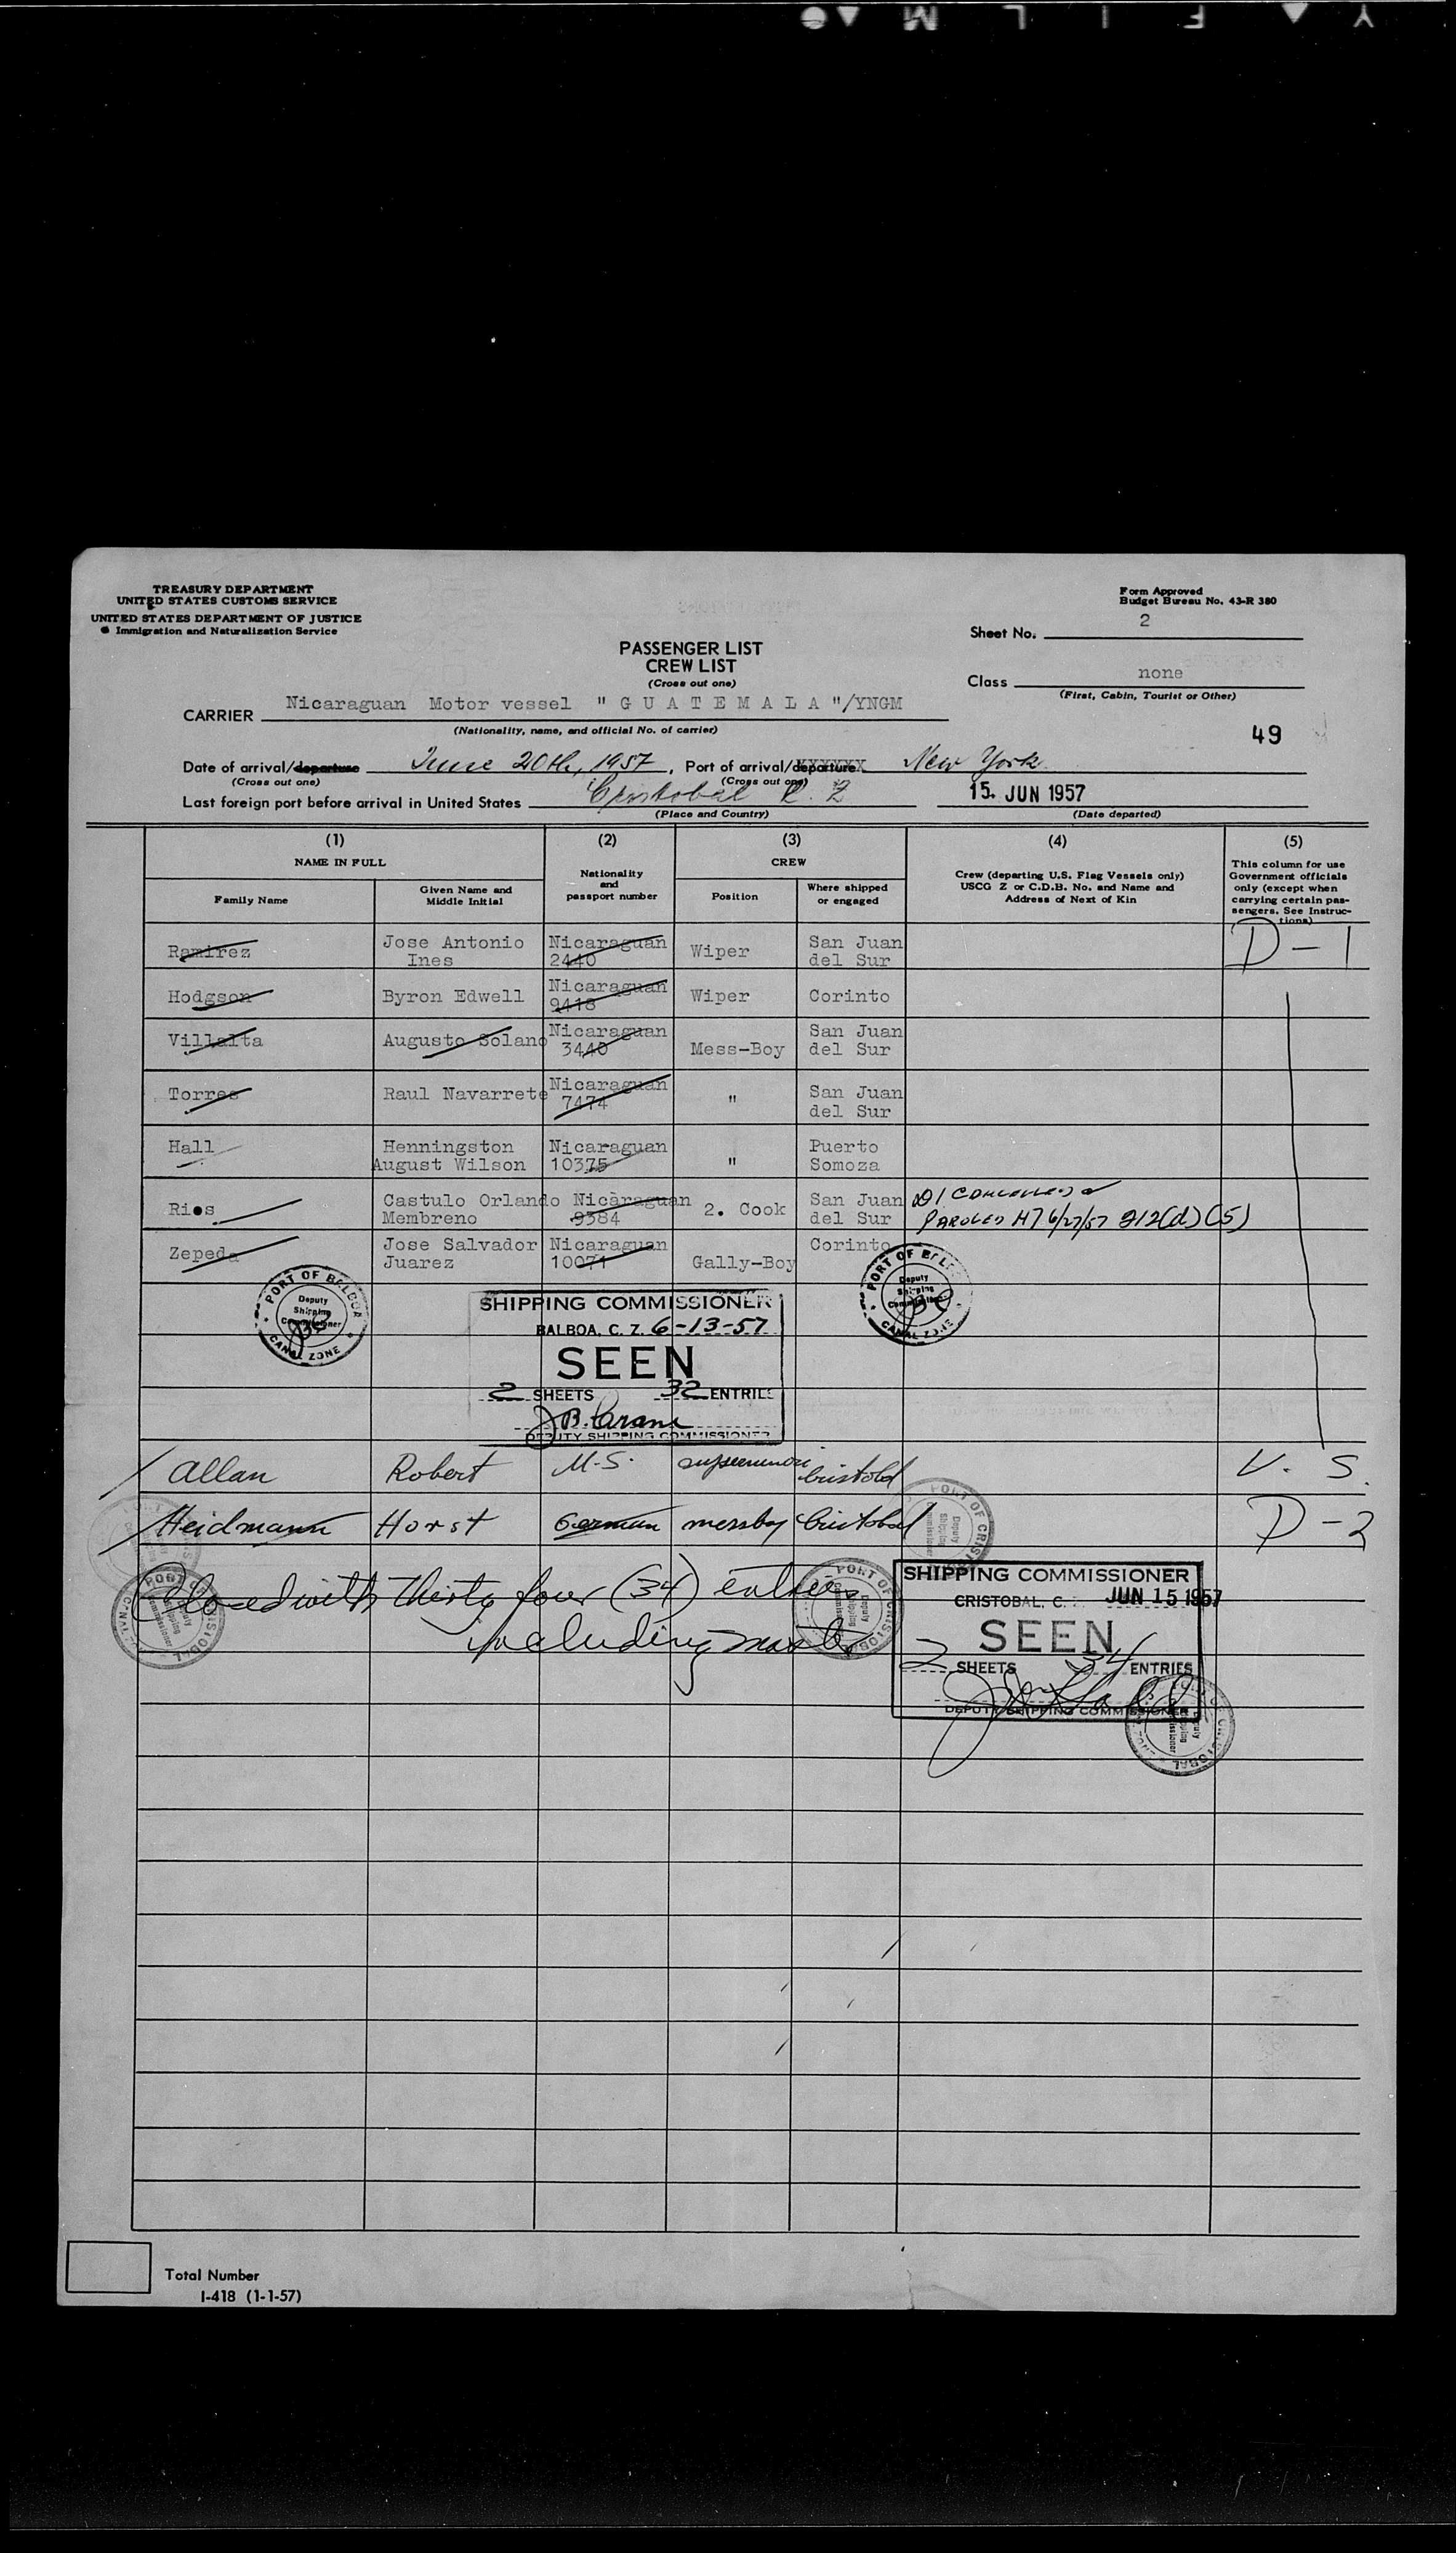 Y F I L M
TREASURY DEPARTMENT
UNITED STATES CUSTOMS SERVICE
UNITED STATES DEPARTMENT OF JUSTICE
Immigration and Naturalization Service
Form Approved
Budget Bureau No. 43-R 380
Sheet No. 2
PASSENGER LIST
CREW LIST
(Cross out one)
Class none
(First, Cabin, Tourist or Other)
CARRIER Nicaraguan Motor vessel "G U A T E M A L A"/YNGM
(Nationality, name, and official No. of carrier)
49
Date of arrival/departure June 20th, 1957, Port of arrival/departure New York
(Cross out one) (Cross out one)
Last foreign port before arrival in United States Cristobal C. Z 15. JUN 1957
(Place and Country) (Date departed)
(1) (2) (3) (4) (5)
NAME IN FULL
Family Name
Given Name and Middle Initial
Nationality and passport number
CREW
Position
Where shipped or engaged
Crew (departing U.S. Flag Vessels only)
USCG Z or C.D.B. No. and Name and
Address of Next of Kin
This column for use
Government officials
only (except when
carrying certain pas-
sengers. See Instruc-
tions)
Ramirez Jose Antonio Ines Nicaraguan 2440 Wiper San Juan del Sur D-1
Hodgson Byron Edwell Nicaraguan 9418 Wiper Corinto
Villalta Augusto Solano Nicaraguan 3440 Mess-Boy San Juan del Sur
Torres Raul Navarrete Nicaraguan 7474 " San Juan del Sur
Hall Henningston August Wilson Nicaraguan 10375 " Puerto Somoza
Rios Castulo Orlando Membreno Nicaraguan 9384 2. Cook San Juan del Sur D1
PAROLED 6/27/57 212(d)(5)
Zepeda Jose Salvador Juarez Nicaraguan 10071 Gally-Boy Corinto
PORT OF BALBOA
Deputy
Shipping
Commissioner
CANAL ZONE
SHIPPING COMMISSIONER
BALBOA, C. Z. 6-13-57
SEEN
2 SHEETS 32 ENTRIES
DEPUTY SHIPPING COMMISSIONER
PORT OF BALBOA
Deputy
Shipping
Commissioner
CANAL ZONE
Allan Robert Cristobal U. S.
Heidmann Horst German messboy Cristobal D-2
Closed with thirty four (34) entries
including master
PORT OF CRISTOBAL
Deputy
Shipping
Commissioner
SHIPPING COMMISSIONER
CRISTOBAL, C. JUN 15 1957
SEEN
2 SHEETS 34 ENTRIES
DEPUTY SHIPPING COMMISSIONER
Total Number
I-418 (1-1-57)